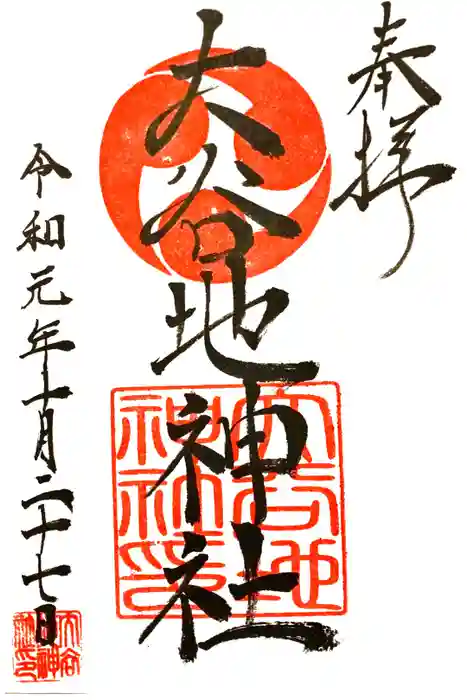 奉拝
大谷地神社
大谷地
神社印
令和元年十一月二十七日